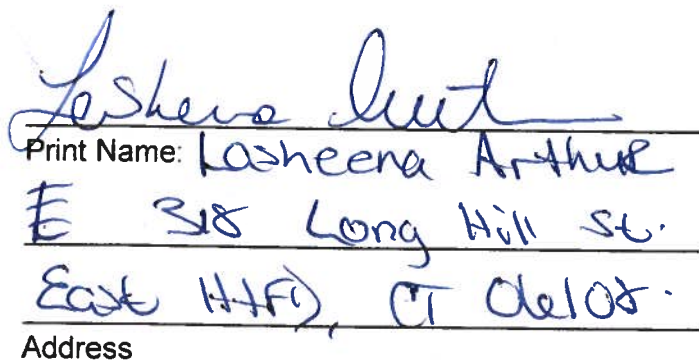 Lasheena Arthur
Print Name: Lasheena Arthur
E 318 Long Hill St.
East Htfd, CT 06108.
Address